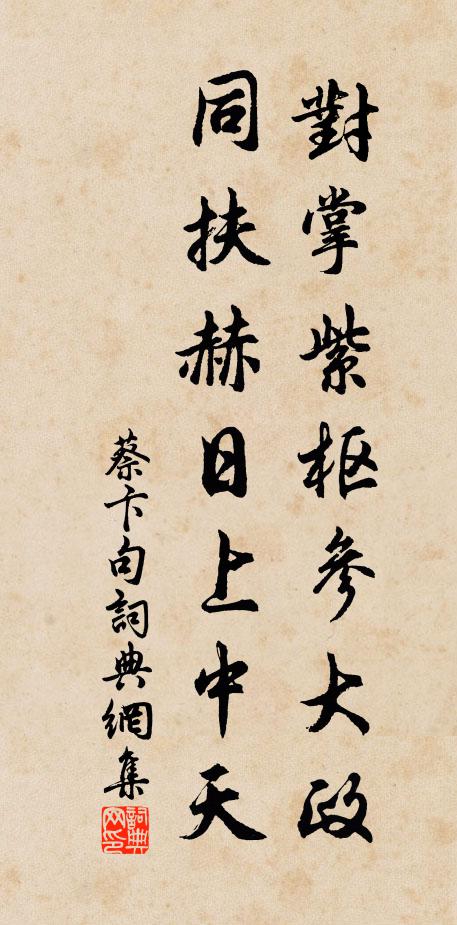 對掌紫枢參大政
同扶赫日上中天
蔡卞句詞典網集
詞典网印